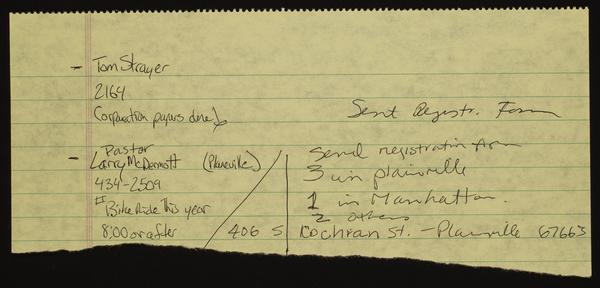 - Tom Strayer
2164
Corporation papers done
Sent Registr. Form
- Pastor
Larry McDermott (Plainville)
434-2509
#1 Bike Ride This year
8:00 or after
Send registration form
3 in plainville
1 in Manhattan.
2 others
406 S Cochran St. - Plainville 67663